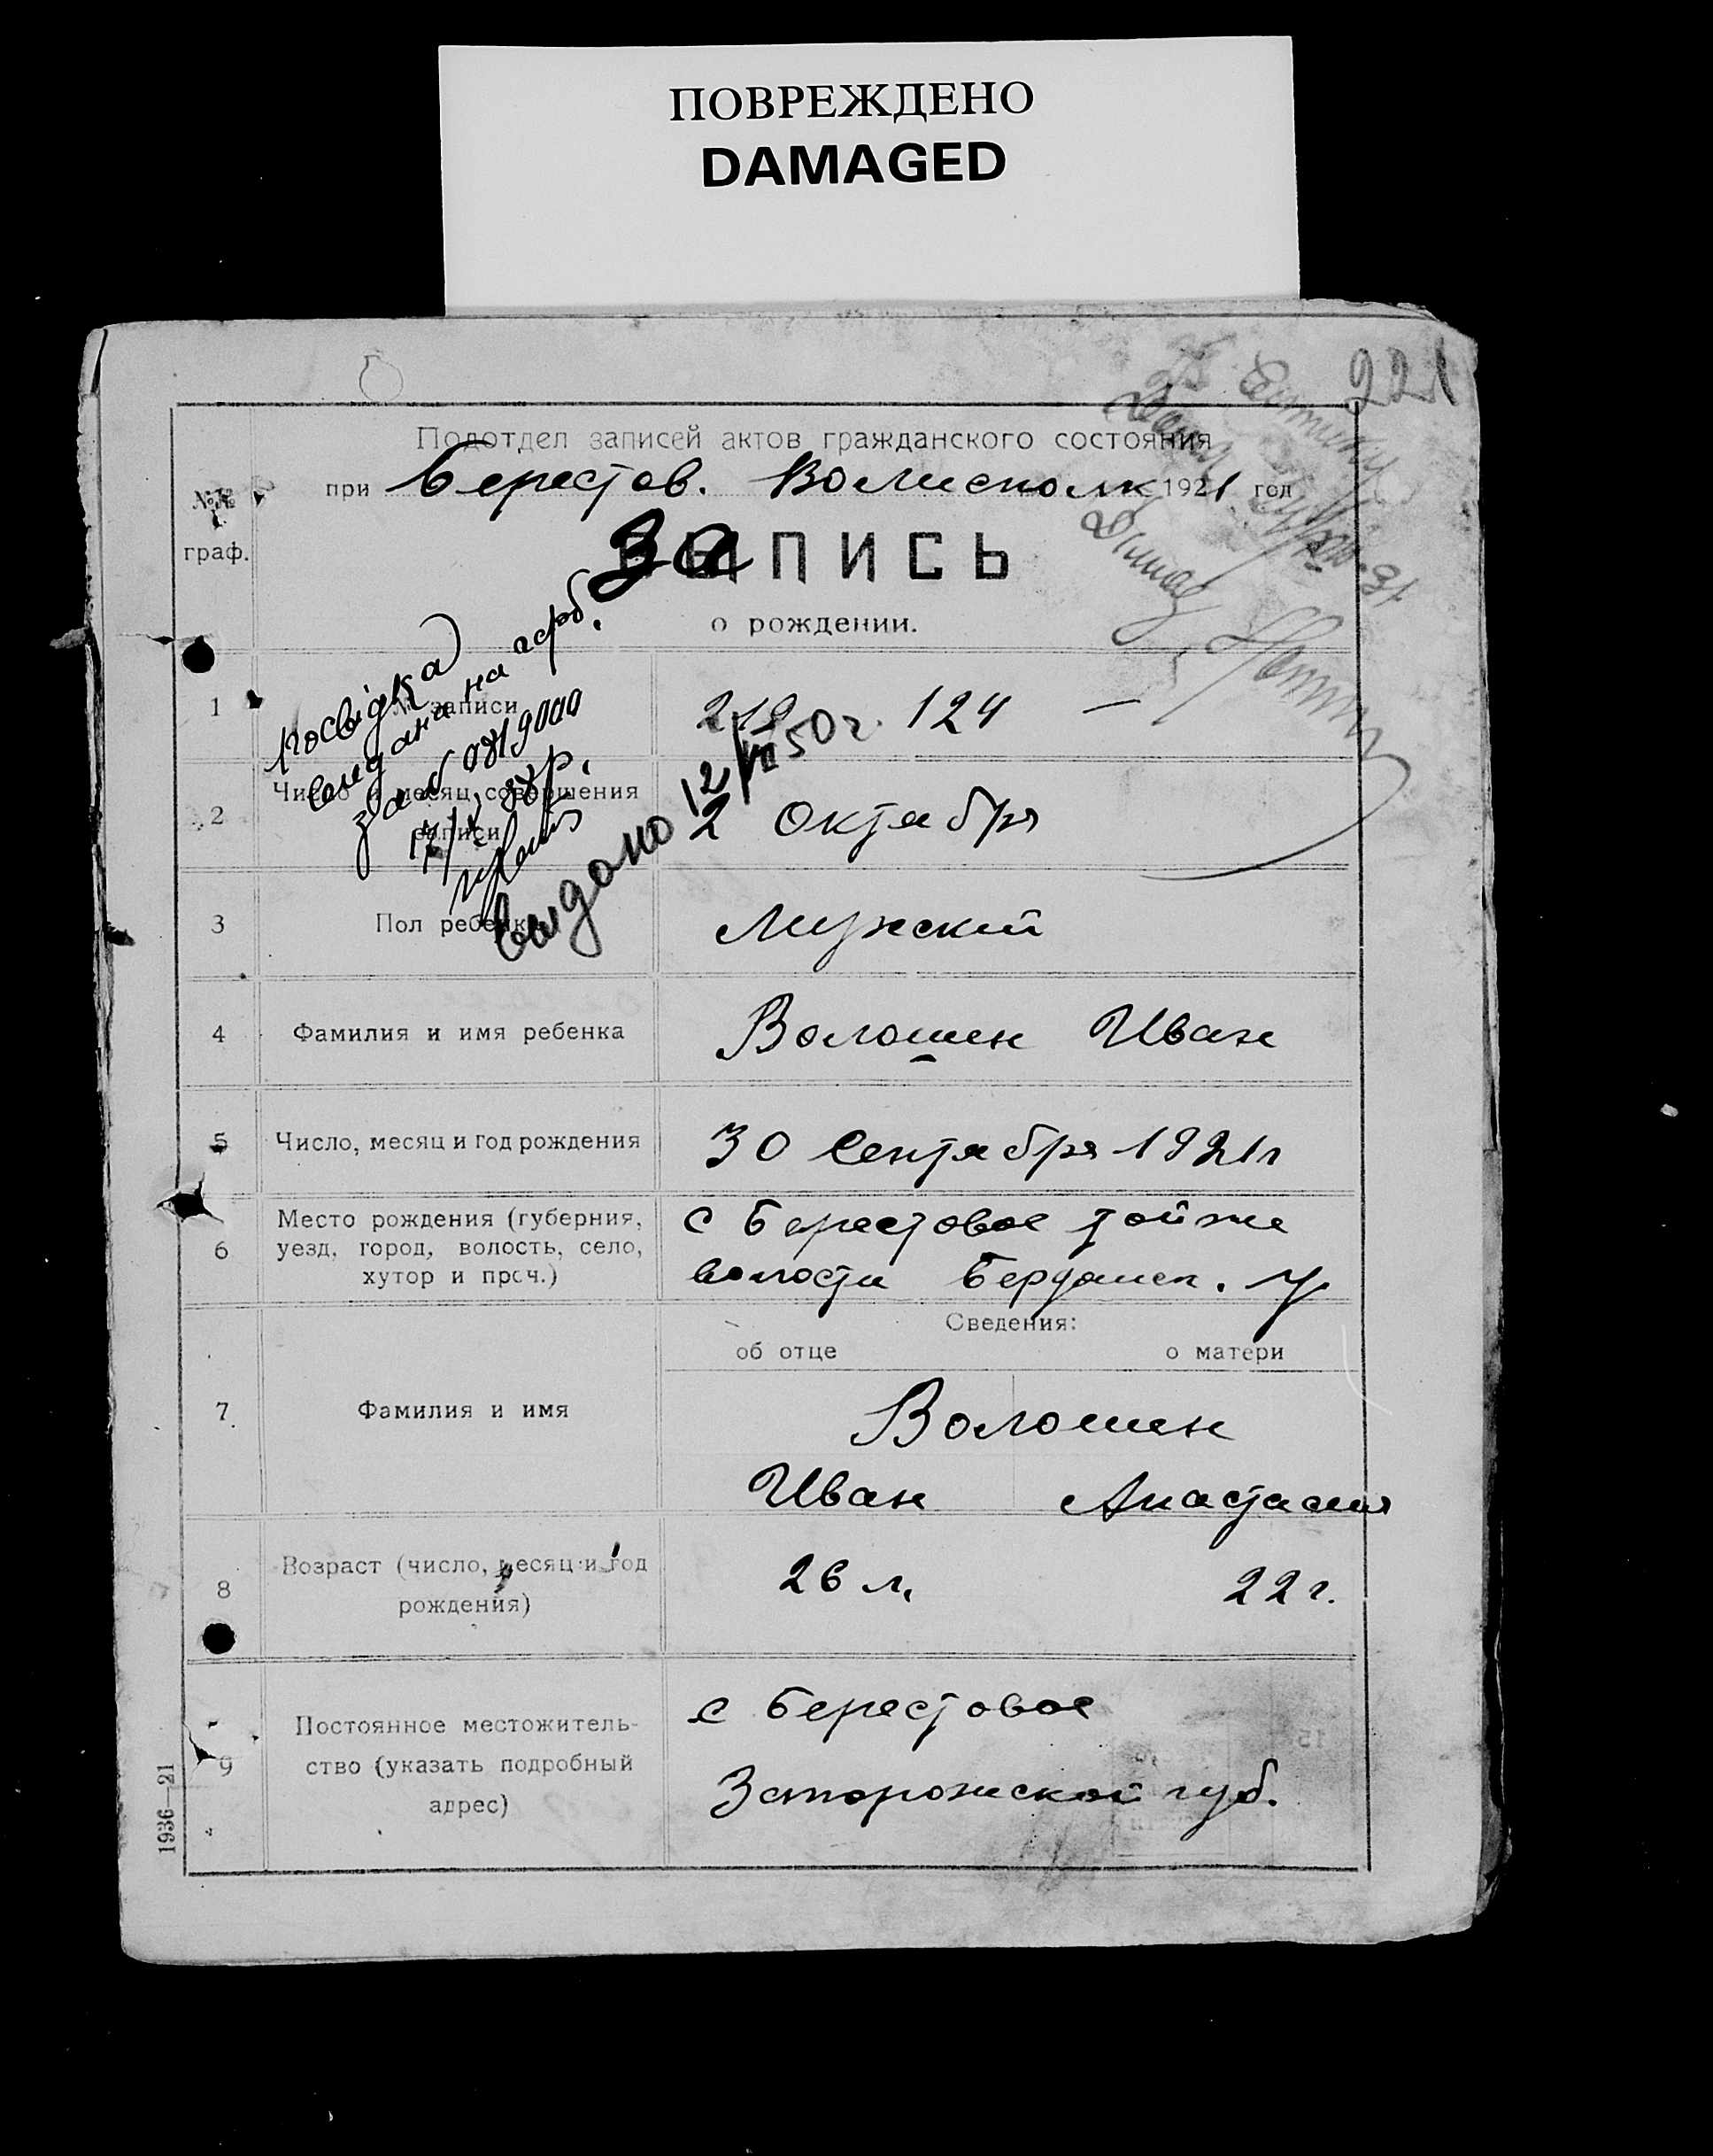 ПОВРЕЖДЕНО
DAMAGED
221
Подотдел записей актов гражданского состояния
при Берестов. Волисполк 1921 год
№№
граф.
Запись
о рождении.
посвідка
видана на герб.
12/VII 50 г.
видано
1 № записи 124 —
2 Число и месяц совершения
записи 2 Октября
3 Пол ребенка Мужский
4 Фамилия и имя ребенка Волошин Иван
5 Число, месяц и год рождения 30 Сентября 1921 г
6 Место рождения (губерния,
уезд, город, волость, село,
хутор и проч.)
с Берестовое тойже
волости Бердянск. у
Сведения:
об отце о матери
7. Фамилия и имя
Волошин
Иван Анастасия
8 Возраст (число, месяц и год
рождения)
26 л. 22 г.
9 Постоянное местожитель-
ство (указать подробный
адрес)
с Берестовое
Запорожской губ.
1936—21